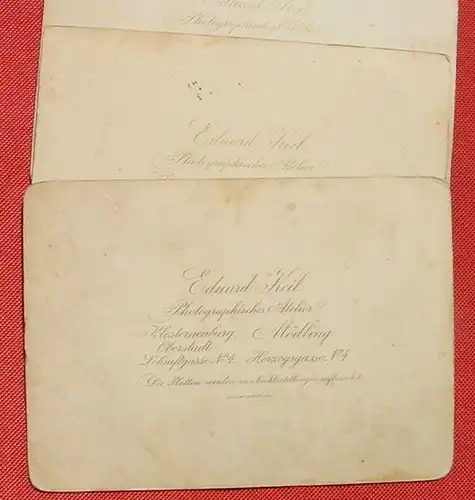 Eduard Keil
Photographisches Atelier
Eduard Keil
Photographisches Atelier
Eduard Keil
Photographisches Atelier
Klosterneuburg, Mödling
Oberstadt
Leisnitzgasse No 4. Herzogsgasse No 4
Die Platten werden zu Nachbestellungen aufbewahrt